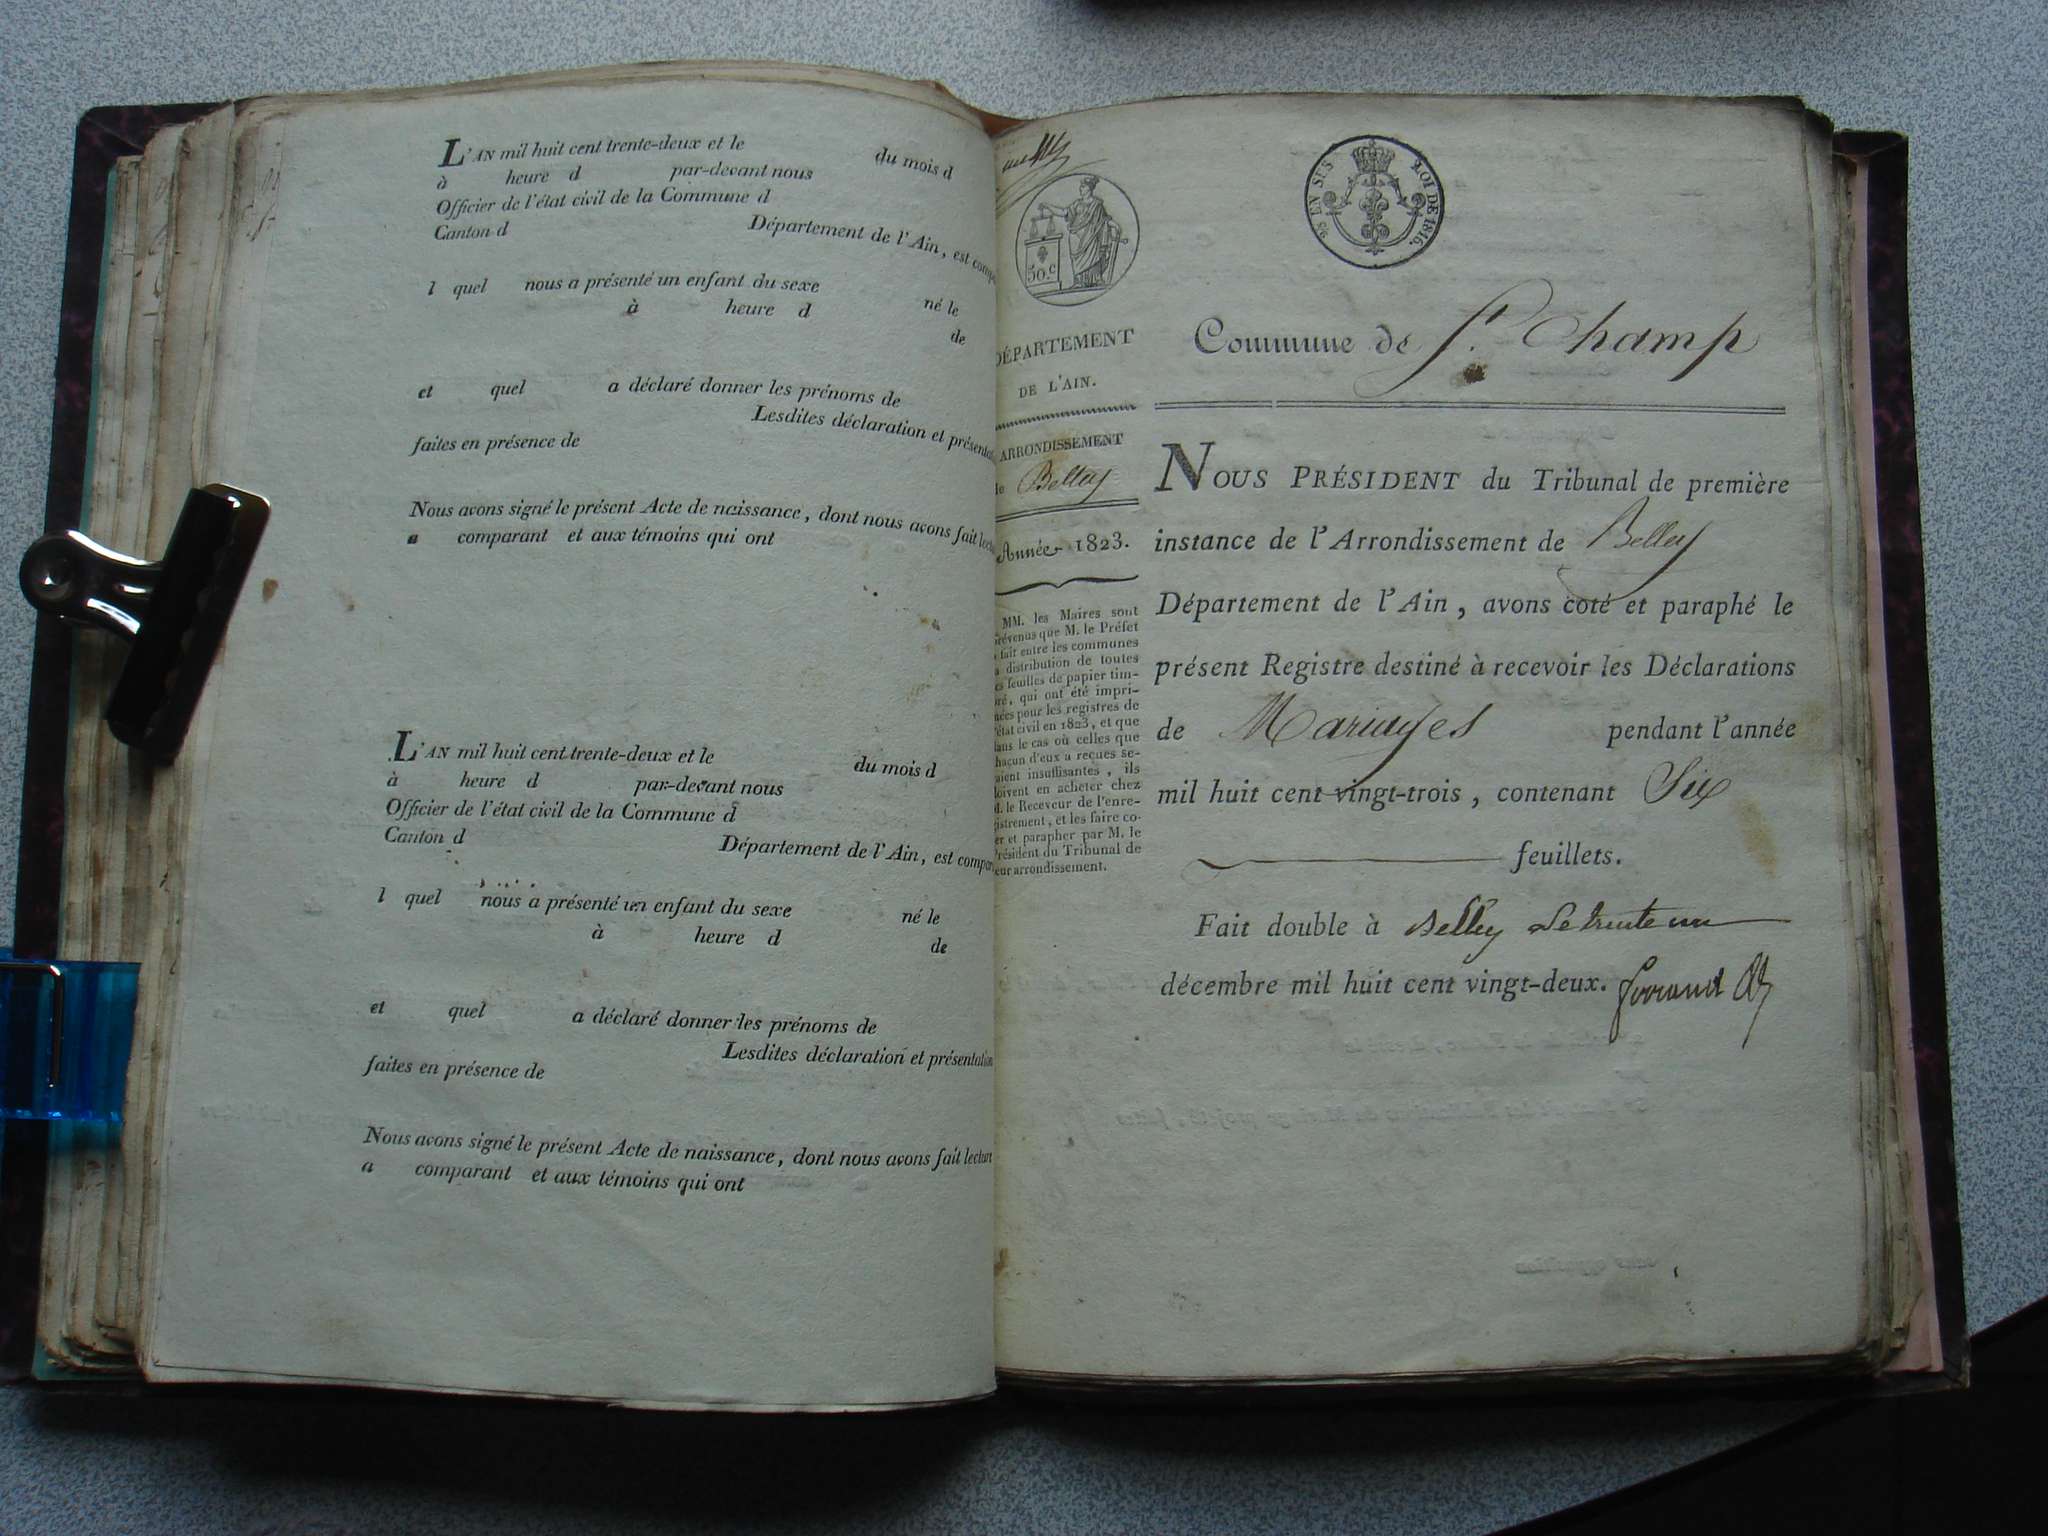 L'AN mil huit cent trente-deux et le du mois d
à heure d par-devant nous
Officier de l'état civil de la Commune d
Canton d Département de l'Ain, est comp
l quel nous a présenté un enfant du sexe né le
à heure d de
et quel a déclaré donner les prénoms de
Lesdites déclaration et présentat
faites en présence de
Nous avons signé le présent Acte de naissance, dont nous avons fait lectu
a comparant et aux témoins qui ont
L'AN mil huit cent trente-deux et le du mois d
à heure d par-devant nous
Officier de l'état civil de la Commune d
Canton d Département de l'Ain, est compar
l quel nous a présenté un enfant du sexe né le
à heure d de
et quel a déclaré donner les prénoms de
Lesdites déclaration et présentation
faites en présence de
Nous avons signé le présent Acte de naissance, dont nous avons fait lectur
a comparant et aux témoins qui ont
50.c
EN SUS LOI DE 1816.
DÉPARTEMENT
DE L'AIN.
ARRONDISSEMENT
de Belley
Année 1823.
MM. les Maires sont
prévenus que M. le Préfet
a fait entre les communes
la distribution de toutes
les feuilles de papier tim-
bré, qui ont été impri-
mées pour les registres de
l'état civil en 1823, et que
dans le cas où celles que
chacun d'eux a reçues se-
raient insuffisantes, ils
doivent en acheter chez
M. le Receveur de l'enre-
gistrement, et les faire co-
ter et parapher par M. le
Président du Tribunal de
leur arrondissement.
Commune de St. Champ
NOUS PRÉSIDENT du Tribunal de première
instance de l'Arrondissement de Belley
Département de l'Ain, avons coté et paraphé le
présent Registre destiné à recevoir les Déclarations
de Mariages pendant l'année
mil huit cent vingt-trois, contenant Six
feuillets.
Fait double à Belley Le trente un
décembre mil huit cent vingt-deux.